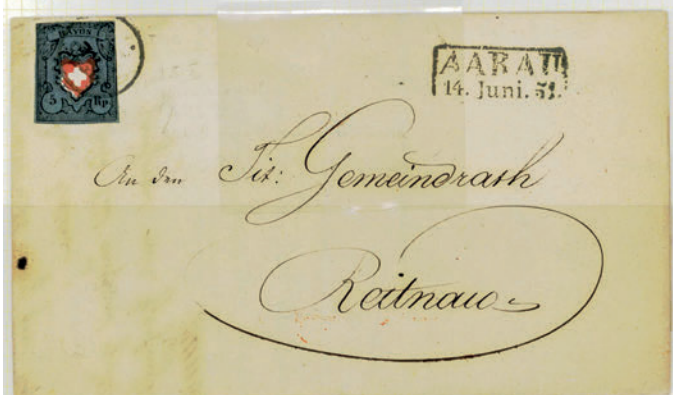 RAYON I.
5 Rp
AARAU
14. Juni. 51.
An den Tit: Gemeindrath
Reitnau